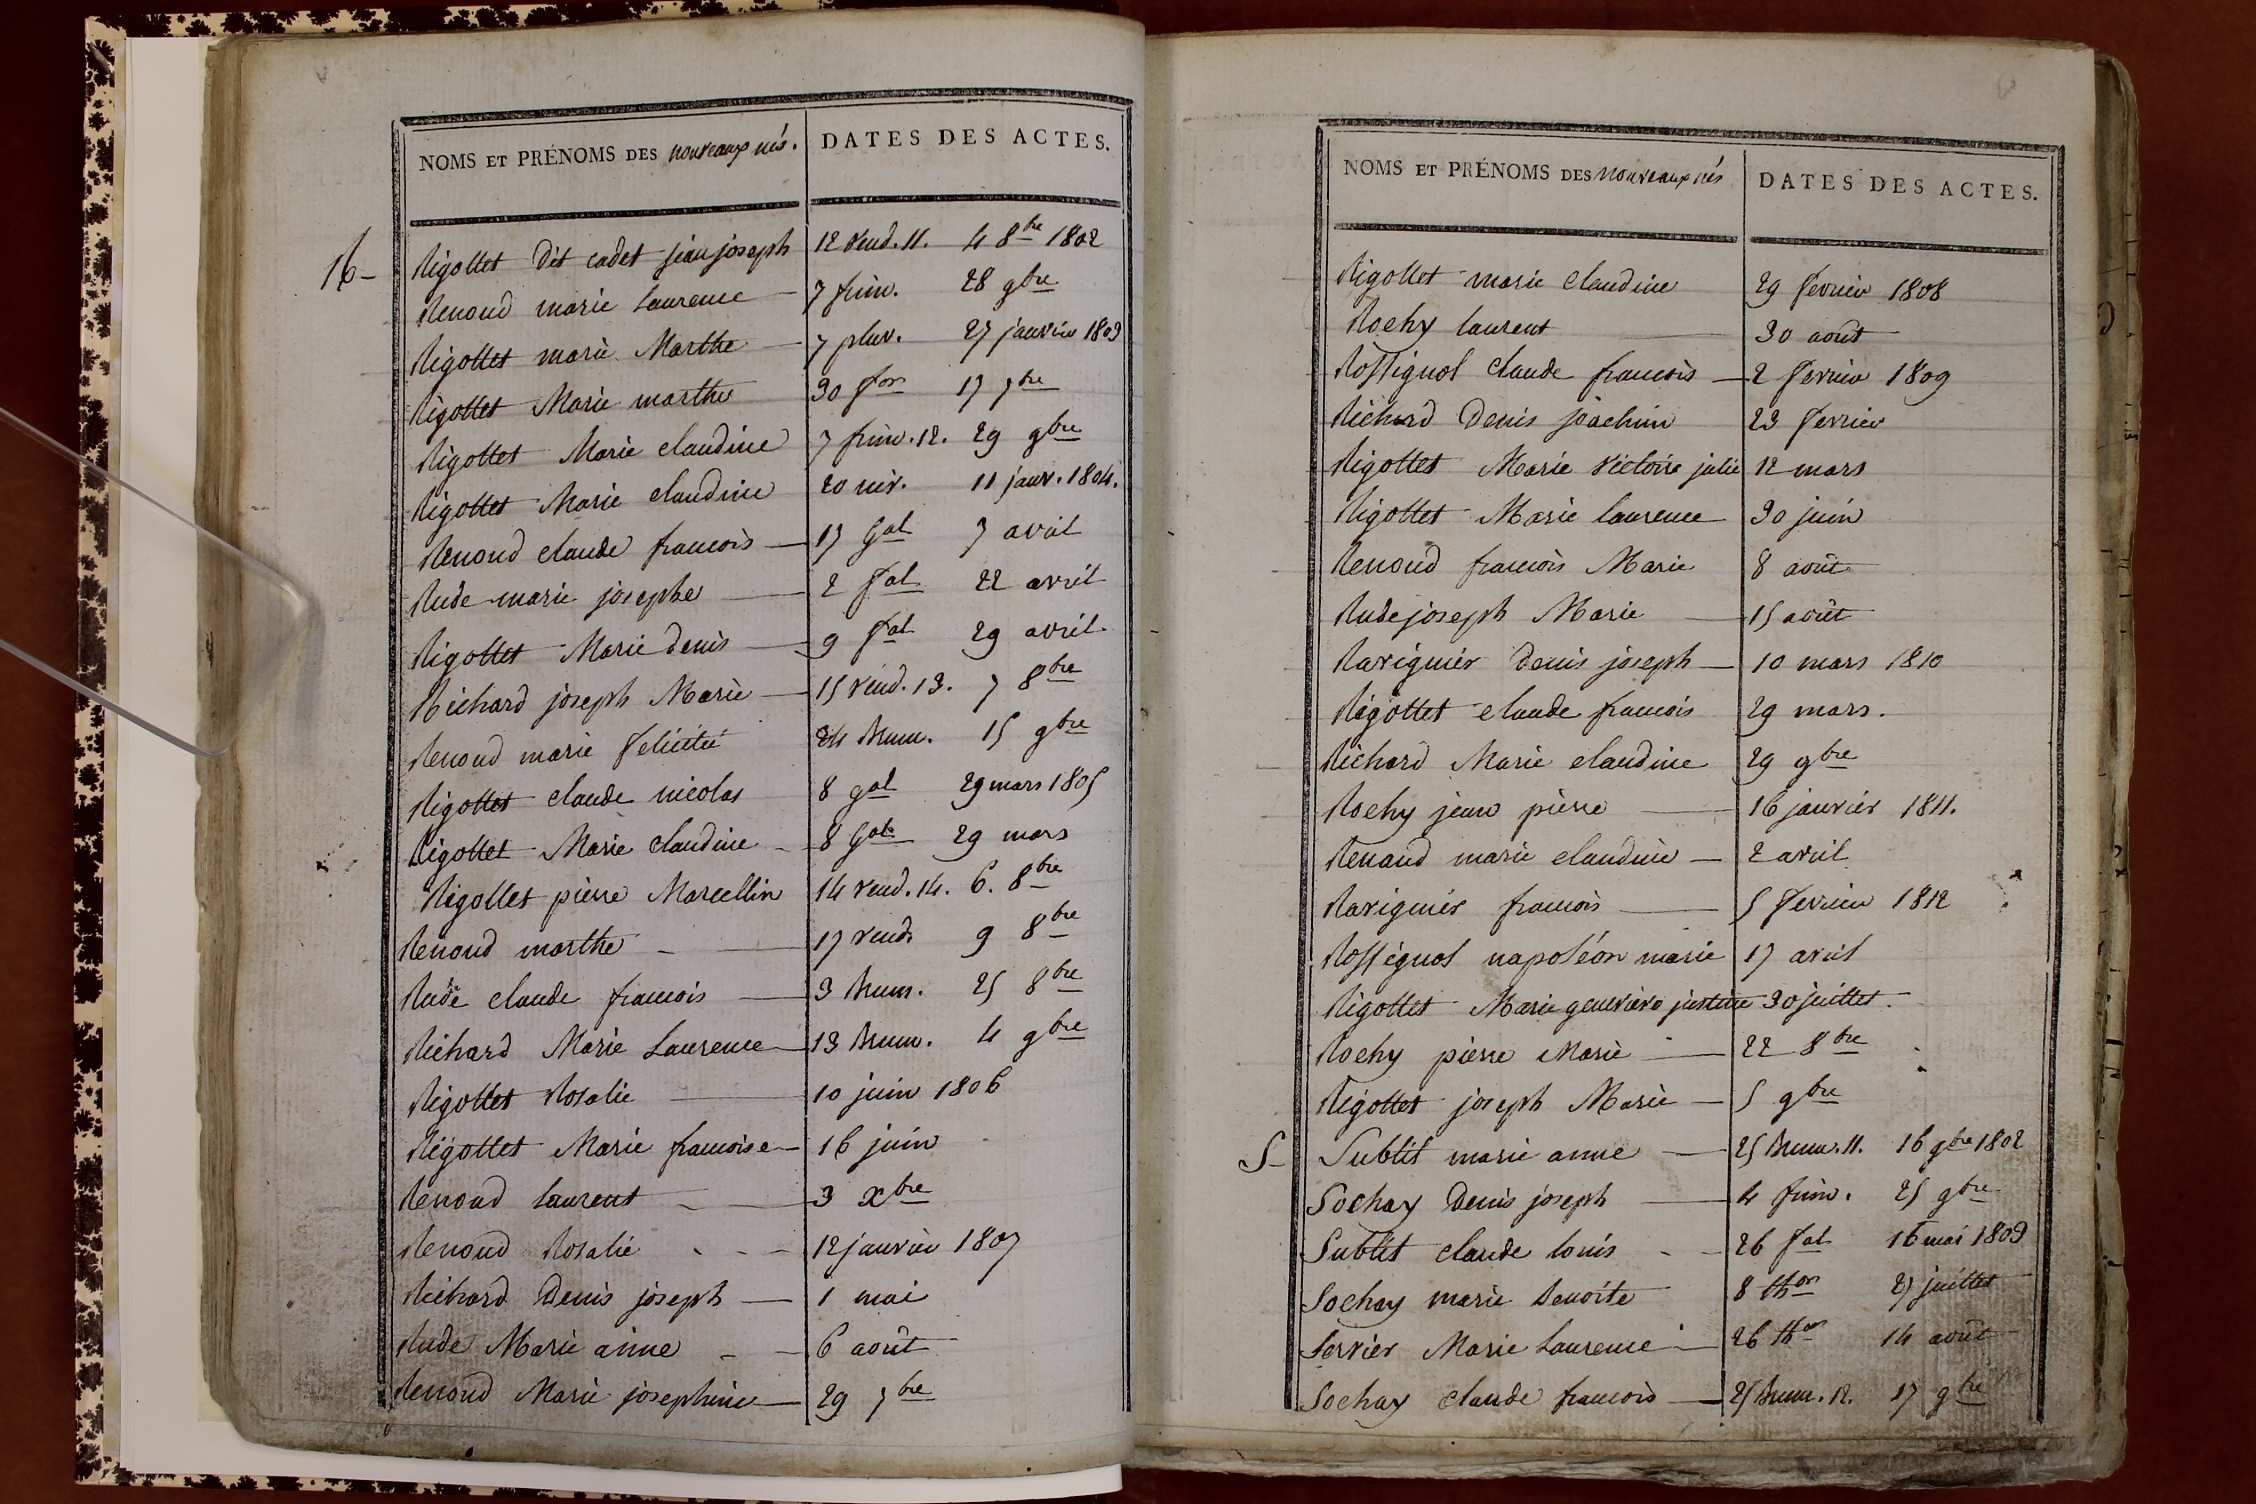 NOMS ET PRÉNOMS DES nouveaux nés. DATES DES ACTES.
R- Rigollet dit cadet jean joseph 12 vend. 11. 4 8bre 1802
Renoud marie Laurence — 7 frim. 28 9bre
Rigollet marie Marthe — 7 pluv. 27 janvier 1803
Rigollet Marie marthe 30 for 17 7bre
Rigollet Marie claudine 7 frim. 12. 29 9bre
Rigollet Marie claudine 20 niv. 11 janv. 1804.
Renoud claude francois — 17 Gal 7 avril
Rude marie josephe — 2 fal 22 avril
Rigollet Marie denis — 9 fal 29 avril
Richard joseph Marie — 15 vend. 13. 7 8bre
Renoud marie felicité 24 brum. 15 9bre
Rigollet claude nicolas 8 gal 29 mars 1805
Rigollet Marie claudine - 8 Gal 29 mars
Rigollet pierre Marcellin 14 vend. 14. 6. 8bre
Renoud marthe - — 17 vend. 9 8bre
Rude claude francois — 3 brum. 25 8bre
Richard Marie Laurence — 13 brum. 4 9bre
Rigollet Rosalie — 10 juin 1806
Rigollet Marie francoise — 16 juin
Renoud laurent - — 3 xbre
Renoud Rosalie - - - 12 janvier 1807
Richard Denis joseph — 1 mai
Rude Marie anne - — 6 août
Renoud Marie josephine — 29 7bre
NOMS ET PRÉNOMS DES nouveaux nés DATES DES ACTES.
Rigollet marie claudine 29 fevrier 1808
Rochy laurent — 30 août
Rossignol claude francois — 2 fevrier 1809
Richard Denis joachim 23 fevrier
Rigollet Marie victoire julie 12 mars
Rigollet Marie laurence 30 juin
Renoud francois Marie 8 août
Rude joseph Marie — 15 août
Ravignier Denis joseph — 10 mars 1810
Rigollet claude francois 29 mars.
Richard Marie claudine 29 9bre
Rochy jean pierre — 16 janvier 1811.
Renaud marie claudine — 2 avril
Ravignier francois — 5 fevrier 1812
Rossignol napoléon marie 17 avril
Rigollet Marie genevieve justine 30 juillet.
Rochy pierre Marie — 22 8bre
Rigollet joseph Marie — 5 9bre
S- Sublit marie anne — 25 brum. 11. 16 9bre 1802
Sochay Denis joseph — 4 frim. 25 9bre
Sublit claude louis - - 26 fal 16 mai 1803
Sochay marie benoite 8 thor 27 juillet
Servier Marie Laurence — 26 thor 14 août
Sochay claude francois — 25 brum. 12. 17 9bre